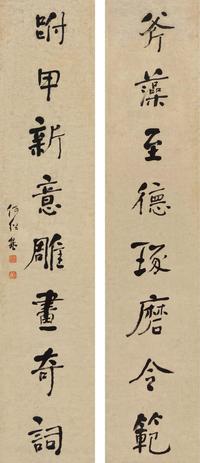 斧藻至德琢磨令範
跗甲新意雕畫奇詞
何紹基